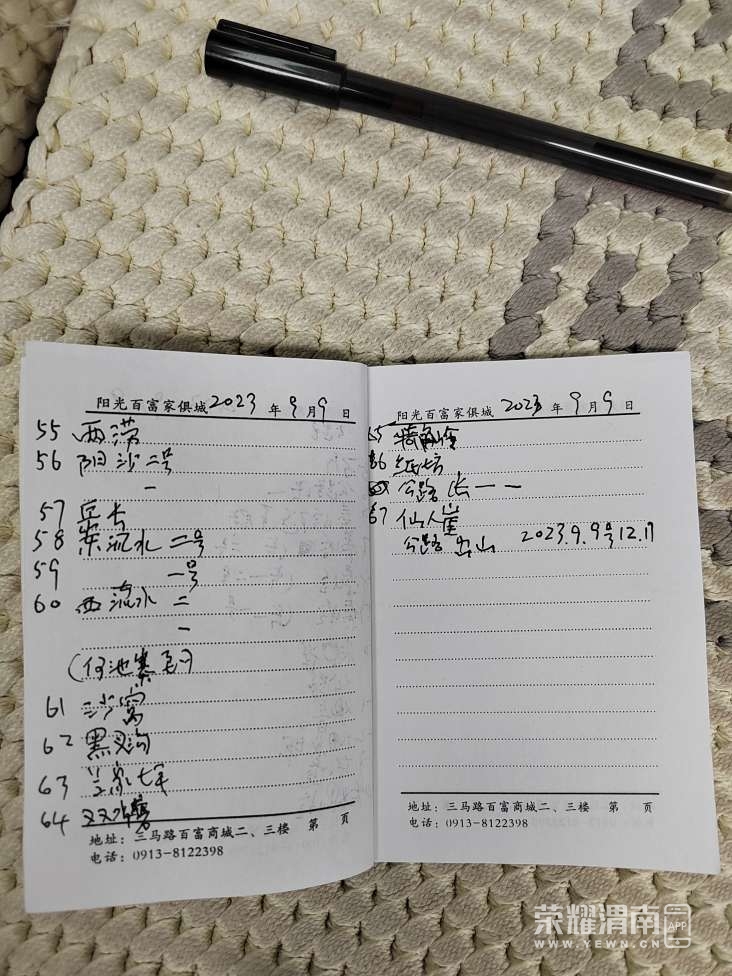 阳光百富家俱城 2023 年 9 月 9 日
55 西涝
56 阳沙二号
一
57
58 东流水 二号
59 一号
60 西流水 二
一
(何池寨
61 沙窝
62 黑叉沟
63
64
地址：三马路百富商城二、三楼 第 页
电话：0913-8122398
阳光百富家俱城 2023 年 9 月 9 日
65
66 纸坊
公路 一一
67 仙人崖
公路 出山 2023.9.9号12.17
地址：三马路百富商城二、三楼 第 页
电话：0913-8122398
荣耀渭南 APP
WWW.YEWN.CN